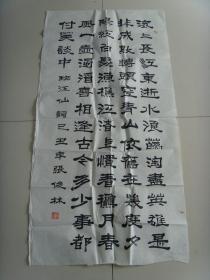 滾〻長江東逝水浪花淘盡英雄是
非成敗轉頭空青山依舊在幾度夕
陽紅白髮漁樵江渚上慣看秋月春
風一壺濁酒喜相逢古今多少事都
付笑談中 臨江仙詞己丑年張俊林